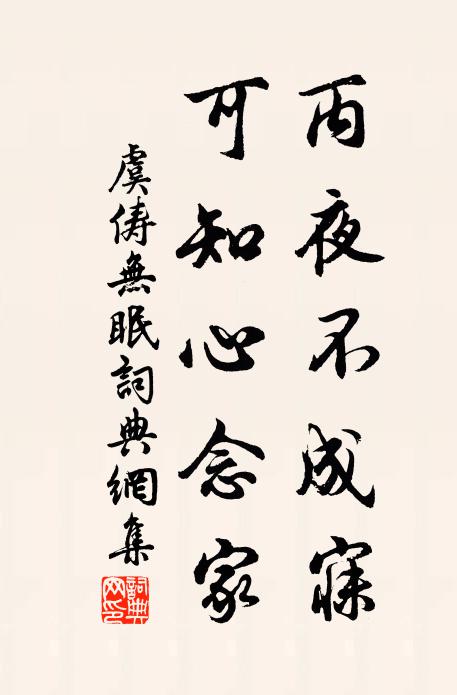 丙夜不成寐
可知心念家
虞俦無眠詞典網集
詞典網印